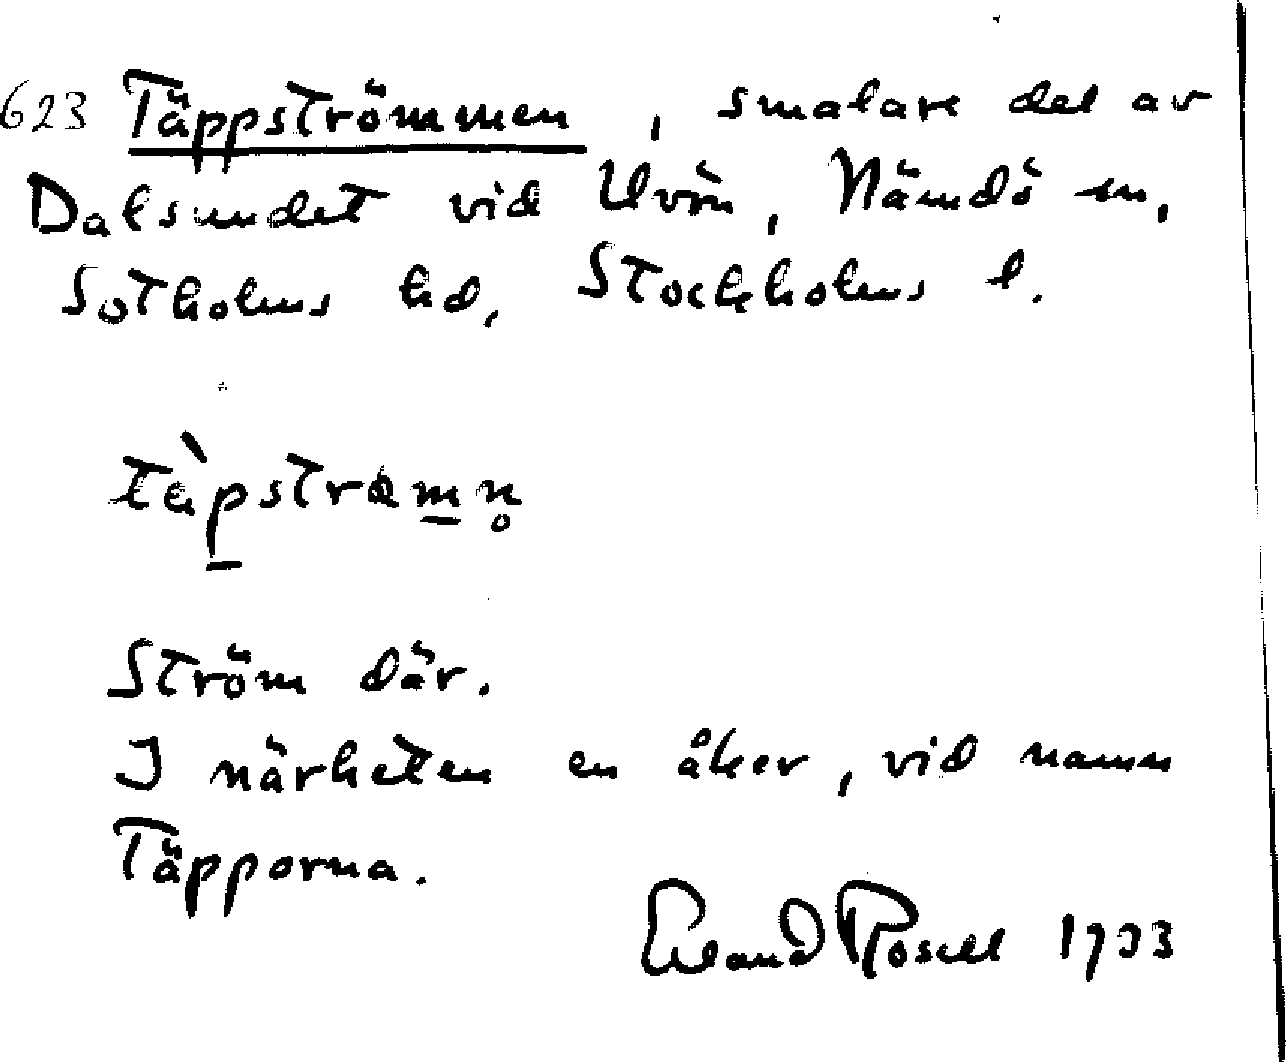 623 Täppströmmen, smalare del av
Dalsundet vid Uvön, Nämdö sn,
Sotholms hd, Stockholms l.
tàpstramn̥
Ström där.
I närheten en åker, vid namn
Täpporna.
Erland Rosell 1933